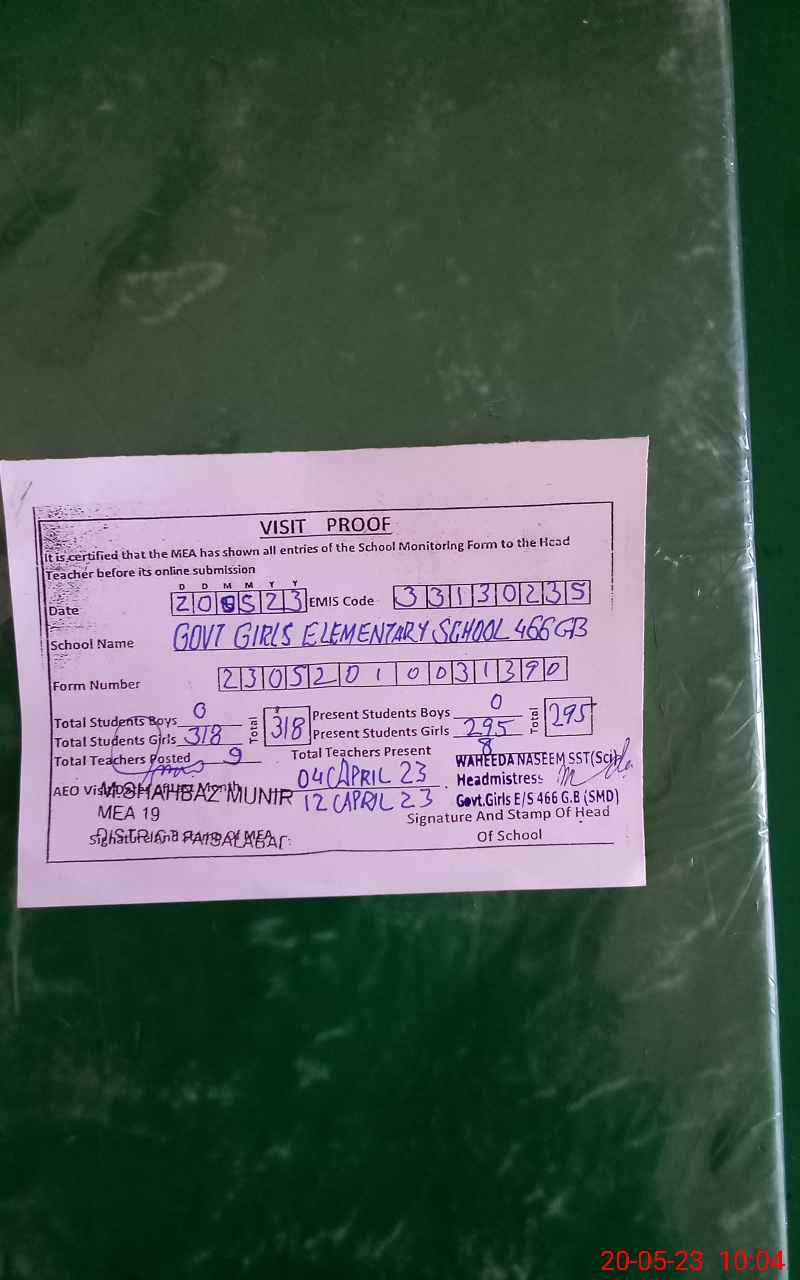 VISIT PROOF
It is certified that the MEA has shown all entries of the School Monitoring Form to the Head
Teacher before its online submission
D D M M Y Y
Date 200523 EMIS Code 33130235
School Name GOVT GIRLS ELEMENTARY SCHOOL 466 GB
Form Number 23052010031390
Total Students Boys 0 Total 318 Present Students Boys 0 Total 295
Total Students Girls 318 Present Students Girls 295
Total Teachers Posted 9 Total Teachers Present 8
AEO Visit 04 APRIL 23
12 APRIL 23
M.SHAHBAZ MUNIR
MEA 19
DISTRICT FAISALABAD
Signature And Stamp of MEA
WAHEEDA NASEEM SST(Sci)
Headmistress
Govt.Girls E/S 466 G.B (SMD)
Signature And Stamp Of Head
Of School
20-05-23 10:04